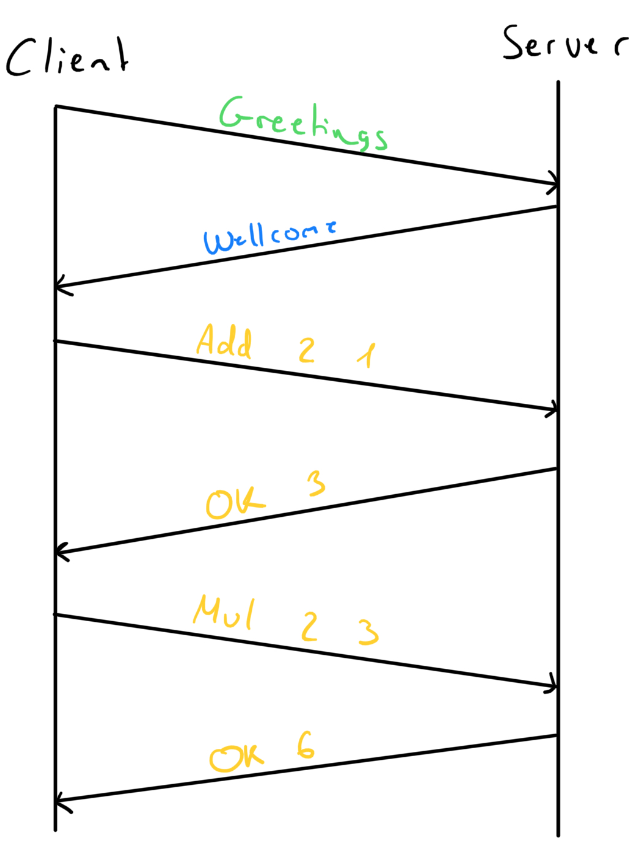 Client
Server
Greetings
Wellcome
Add 2 1
OK 3
Mul 2 3
OK 6